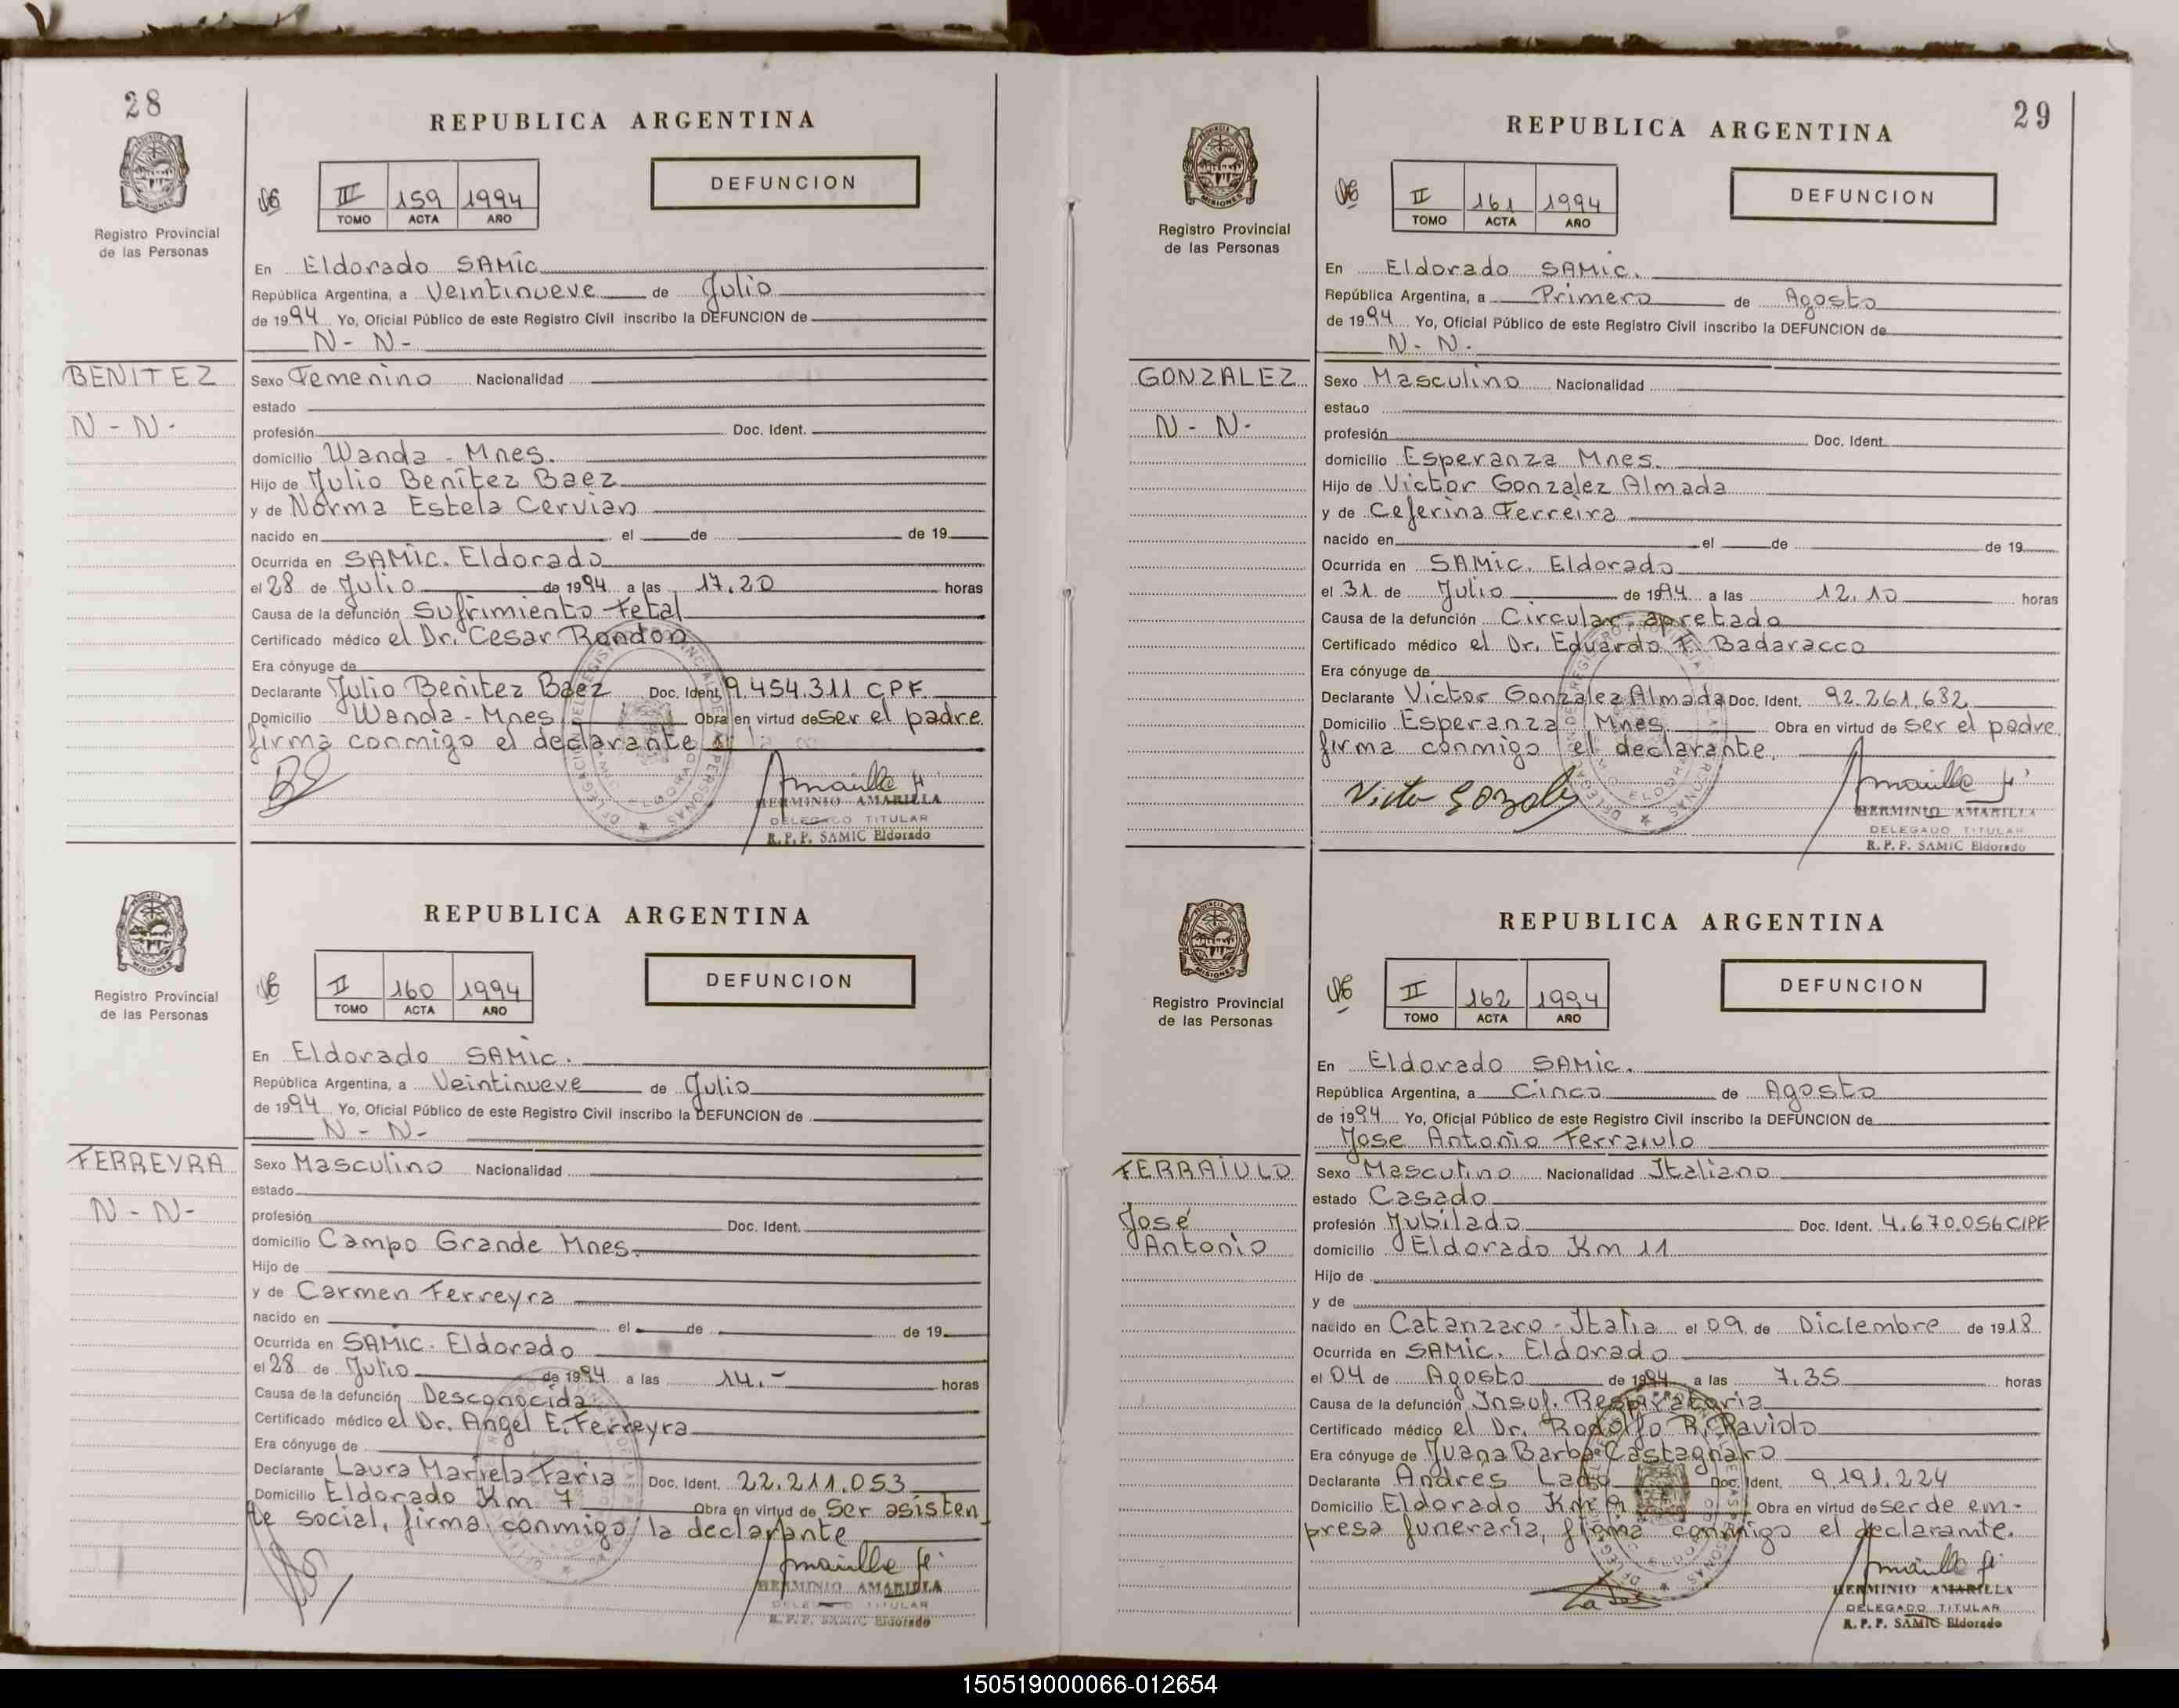 28
REPUBLICA ARGENTINA
III 159 1994
TOMO ACTA AÑO
DEFUNCION
Registro Provincial
de las Personas
En Eldorado SAMIC
República Argentina, a Veintinueve de Julio
de 1994 Yo, Oficial Público de este Registro Civil inscribo la DEFUNCION de
N - N -
BENITEZ
N - N -
Sexo Femenino Nacionalidad
estado
profesión Doc. Ident.
domicilio Wanda - Mnes.
Hijo de Julio Benítez Baez
y de Norma Estela Cervian
nacido en el de de 19
Ocurrida en SAMIC. Eldorado
el 28 de Julio de 1994 a las 17.20 horas
Causa de la defunción Sufrimiento Fetal
Certificado médico el Dr. Cesar Rondon
Era cónyuge de
Declarante Julio Benitez Baez Doc. Ident. 9.454.311 CPF
Domicilio Wanda - Mnes Obra en virtud de ser el padre
firma conmigo el declarante
HERMINIO AMARILLA
DELEGADO TITULAR
R.P.P. SAMIC Eldorado
REPUBLICA ARGENTINA
II 160 1994
TOMO ACTA AÑO
DEFUNCION
Registro Provincial
de las Personas
En Eldorado SAMIC.
República Argentina, a Veintinueve de Julio
de 1994 Yo, Oficial Público de este Registro Civil inscribo la DEFUNCION de
N - N -
FERREYRA
N - N -
Sexo Masculino Nacionalidad
estado
profesión Doc. Ident.
domicilio Campo Grande Mnes.
Hijo de
y de Carmen Ferreyra
nacido en el de de 19
Ocurrida en SAMIC. Eldorado
el 28 de Julio de 1994 a las 14.- horas
Causa de la defunción Desconocida
Certificado médico el Dr. Angel E. Ferreyra
Era cónyuge de
Declarante Laura Mariela Faria Doc. Ident. 22.211.053
Domicilio Eldorado Km 7 Obra en virtud de Ser asisten
te social, firma conmigo la declarante
HERMINIO AMARILLA
DELEGADO TITULAR
R.P.P. SAMIC Eldorado
29
REPUBLICA ARGENTINA
II 161 1994
TOMO ACTA AÑO
DEFUNCION
Registro Provincial
de las Personas
En Eldorado SAMIC.
República Argentina, a Primero de Agosto
de 1994 Yo, Oficial Público de este Registro Civil inscribo la DEFUNCION de
N - N -
GONZALEZ
N - N -
Sexo Masculino Nacionalidad
estado
profesión Doc. Ident.
domicilio Esperanza Mnes.
Hijo de Victor Gonzalez Almada
y de Ceferina Ferreira
nacido en el de de 19
Ocurrida en SAMIC. Eldorado
el 31 de Julio de 1994 a las 12.10 horas
Causa de la defunción Circular apretado
Certificado médico el Dr. Eduardo F. Badaracco
Era cónyuge de
Declarante Victor Gonzalez Almada Doc. Ident. 92.261.682
Domicilio Esperanza Mnes Obra en virtud de ser el padre
firma conmigo el declarante.
HERMINIO AMARILLA
DELEGADO TITULAR
R.P.P. SAMIC Eldorado
REPUBLICA ARGENTINA
II 162 1994
TOMO ACTA AÑO
DEFUNCION
Registro Provincial
de las Personas
En Eldorado SAMIC.
República Argentina, a Cinco de Agosto
de 1994 Yo, Oficial Público de este Registro Civil inscribo la DEFUNCION de
Jose Antonio Ferraiulo
FERRAIULO
José
Antonio
Sexo Masculino Nacionalidad Italiano
estado Casado
profesión Jubilado Doc. Ident. 4.670.056 CIPF
domicilio Eldorado Km 11
Hijo de
y de
nacido en Catanzaro - Italia el 09 de Diciembre de 1918
Ocurrida en SAMIC. Eldorado
el 04 de Agosto de 1994 a las 7.35 horas
Causa de la defunción Insuf. Respiratoria
Certificado médico el Dr. Rodolfo R. Raviolo
Era cónyuge de Juana Barba Castagnaro
Declarante Andres Lado Doc. Ident. 9.191.224
Domicilio Eldorado Km 9 Obra en virtud de ser de em-
presa funeraria, firma conmigo el declarante.
HERMINIO AMARILLA
DELEGADO TITULAR
R.P.P. SAMIC Eldorado
150519000066-012654